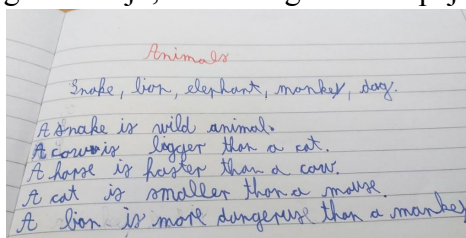 Animals
Snake, lion, elephant, monkey, dog.
A snake is wild animal.
A cow is bigger than a cat.
A horse is faster than a cow.
A cat is smaller than a mouse.
A lion is more dangeruse than a mankey